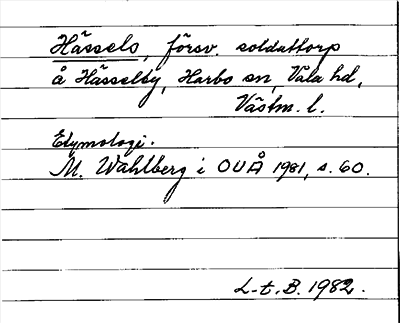 Hässels, försv. soldattorp
å Hässelby, Harbo sn, Våla hd,
Västm. l.
Etymologi.
M. Wahlberg i OUÅ 1981, s. 60.
L-t. B. 1982.